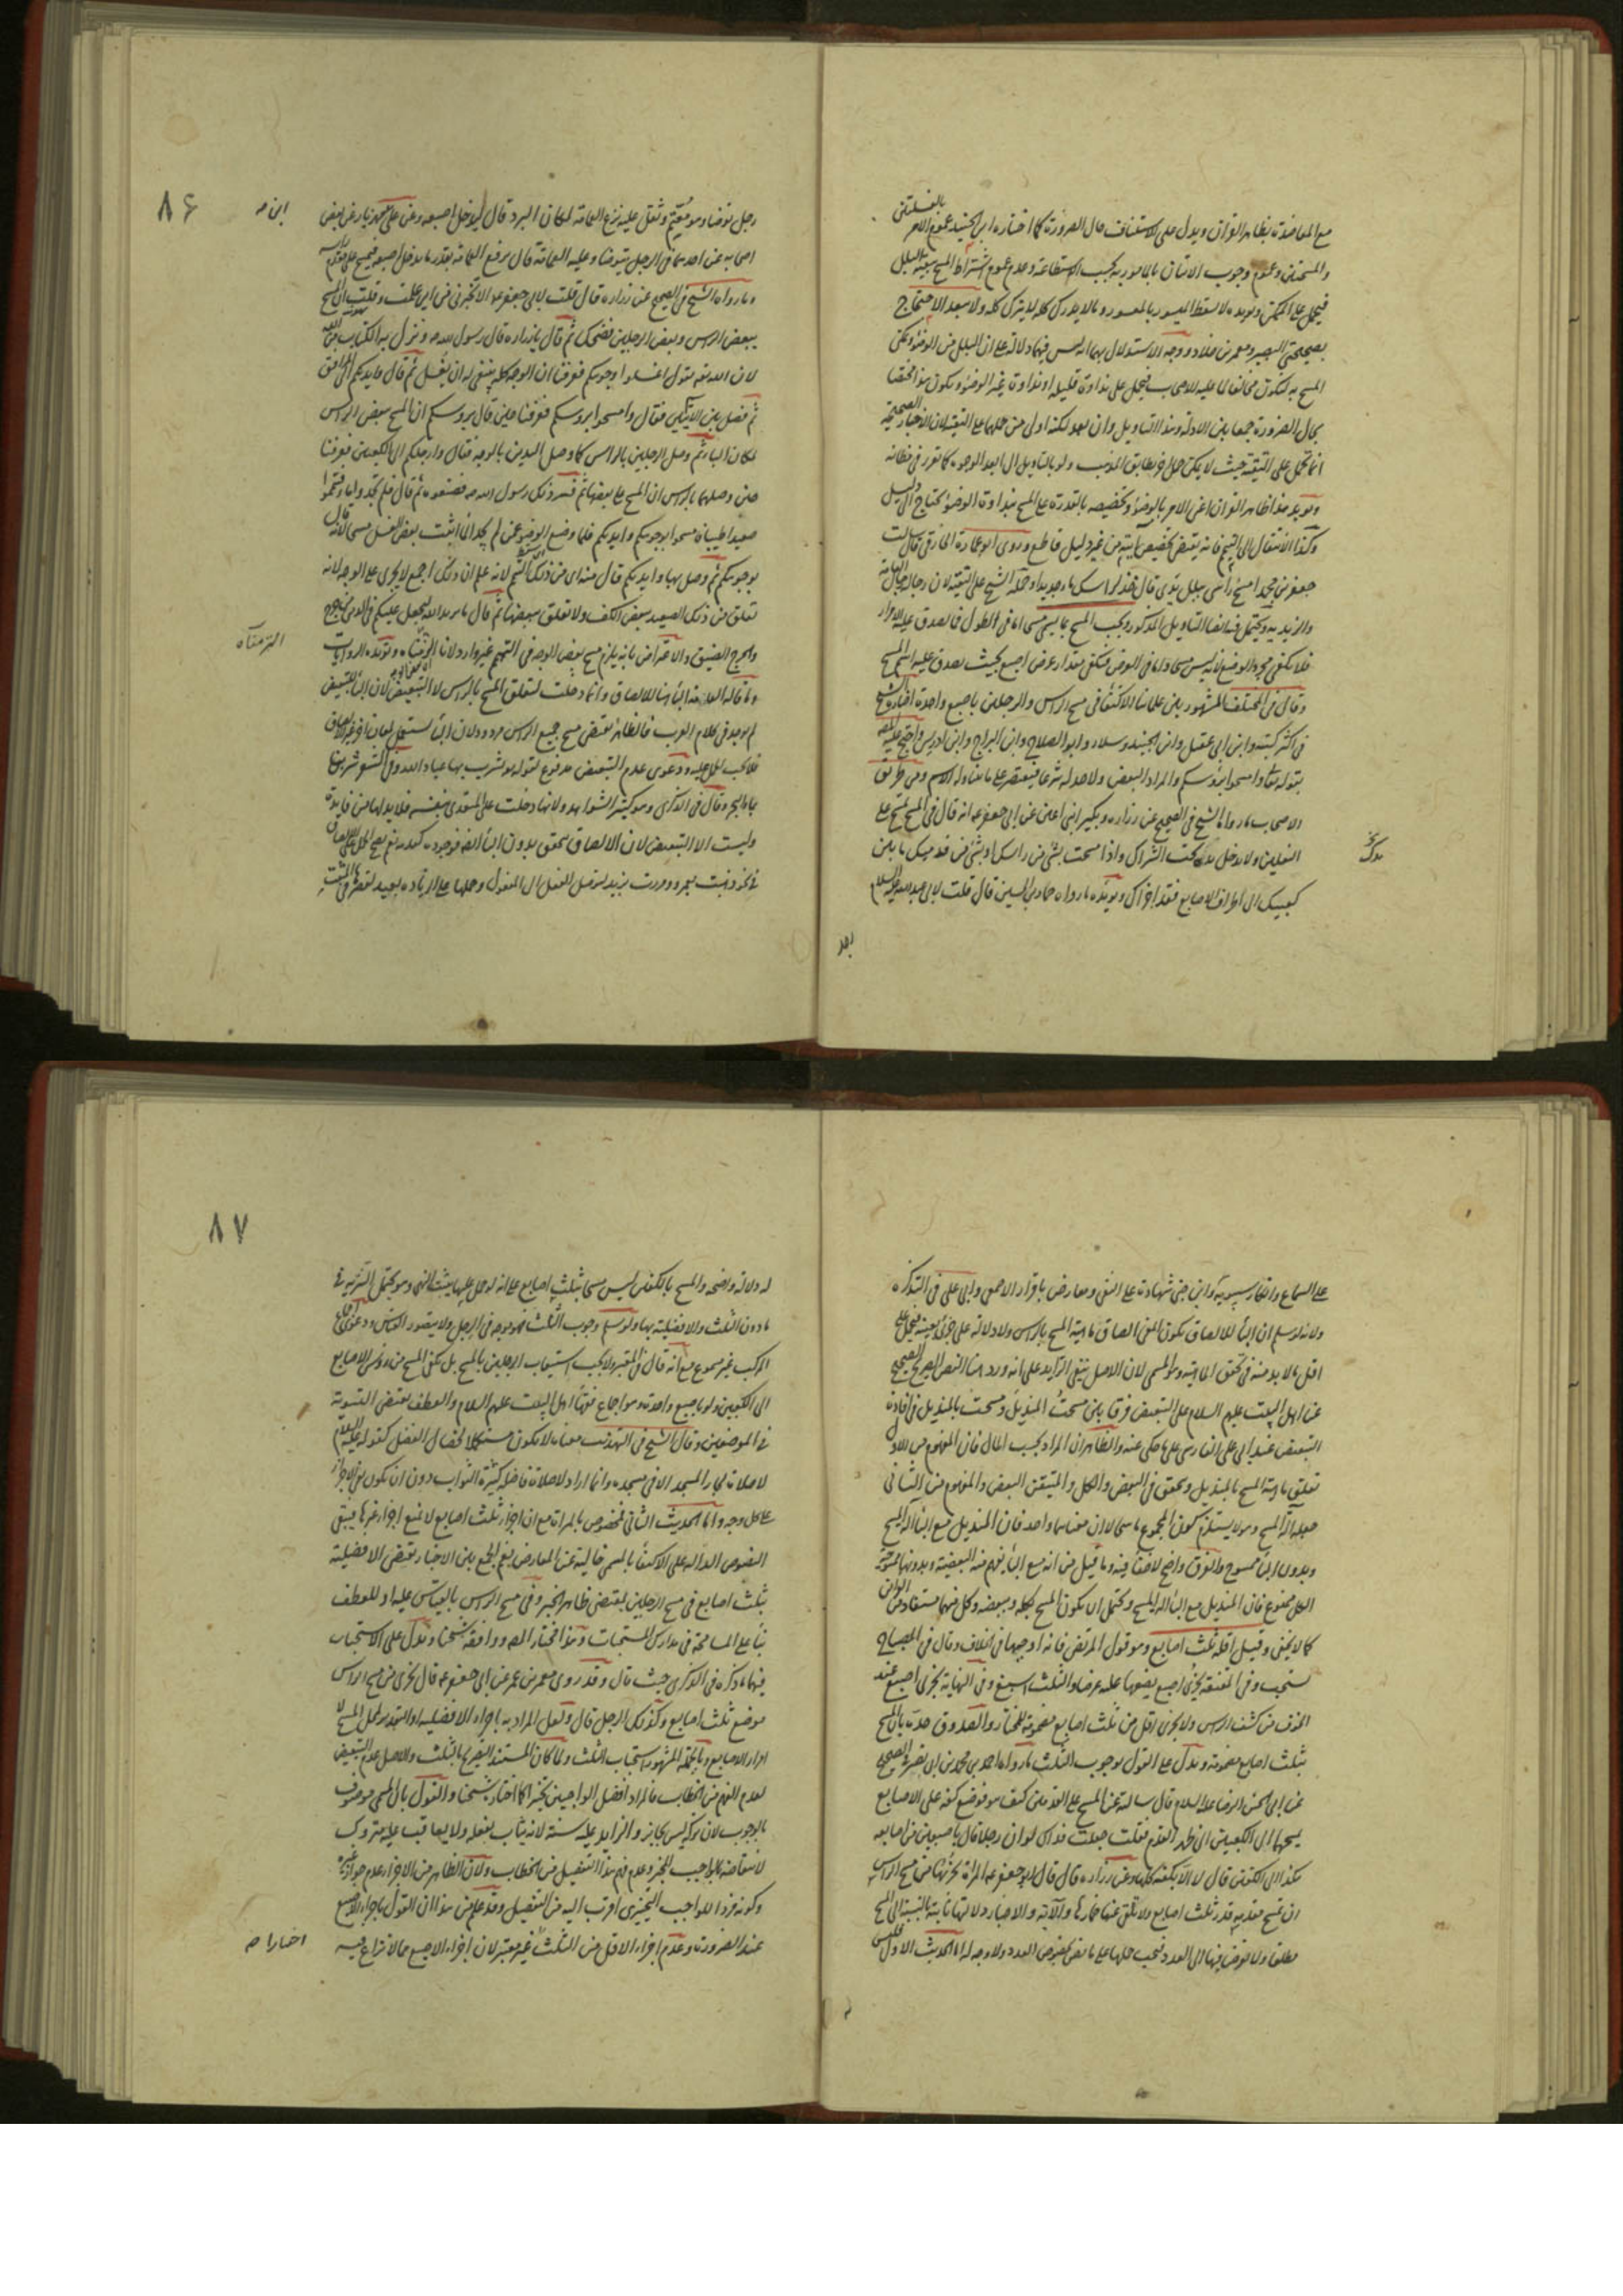 مع المعاضدة بظاهر القران ويدل على الاستيناف حال الضرورة كما اختاره ابن الجنيد عموم الامر بالغسلتين
والمسحتين وعموم وجوب الاتيان بالمامور به بحسب الاستطاعة وعدم عموم اشتراط المسح ببقية البلل
فيحمل على الممكن ويؤيده لا يسقط الميسور بالمعسور وما لا يدرك كله لا يترك كله ولا يبعد الاحتجاج
بصحيحتي ابي بصير ومعمر بن خلاد ووجه الاستدلال بهما انه ليس فيهما دلالة على ان البلل من الوضوء ويكن
المسح به ليكون مخالفا لما عليه الاصحاب فيحمل على نداوة قليلة او نداوة غير الوضوء ويكون هذا مختصا
بحال الضرورة جمعا بين الادلة وهذا التاويل وان بعد لكنه اولى من حملها على التقية لان الاخبار الصحيحة
انما تحمل على التقية حيث لا يمكن حمل يطابق المذهب ولو بالتاويل الى ابعد الوجوه كما تقرر في مظانه
ويؤيد هذا ظاهر القران اعني الامر بالوضوء وتخصيصه بالقدرة على المسح بنداوة الوضوء يحتاج الى دليل
وكذا الانتقال الى التيمم فانه يقتضي تخصيص آيته من غير دليل قاطع وروى ابو عمارة الحارثي قال سالت
جعفر بن محمد امسح راسي ببلل يدي قال خذ لراسك ماء جديدا وحمله الشيخ على التقية لان رجاله رجال العامة
والزيدية ويحتمل فيه ايضا التاويل المذكور ويجب المسح بما يسمى مسحا اما في الطول فما لصدق عليه الامرار
فلا يكفي مجرد الوضع لانه ليس مسحا واما في العرض فيكفي مقدار عرض اصبع بحيث يصدق عليه اسم المسح
وقال في المختلف المشهور بين علمائنا الاكتفاء في مسح الراس والرجلين باصبع واحدة اختاره الشيخ
في اكثر كتبه وابن ابي عقيل وابن الجنيد وسلار وابو الصلاح وابن البراج وابن ادريس واحتج عليه المص
بقوله تعالى وامسحوا برؤسكم والمراد البعض ولا حد له شرعا فيقتصر على ما يتناوله الاسم ومن طريق
الاصحاب ما رواه الشيخ في الصحيح عن زرارة وبكير ابني اعين عن ابي جعفر ع انه قال في المسح تمسح على
النعلين ولا تدخل يدك تحت الشراك واذا مسحت بشئ من راسك او بشئ من قدميك ما بين
كعبيك الى اطراف الاصابع فقد اجزاك ويؤيده ما رواه حماد بن الحسين قال قلت لابي عبد الله عليه السلام
يدك
رجل
٨٦
ابن م
رجل توضأ وهو معتم وثقل عليه نزع العمامة لمكان البرد قال ليدخل اصبعه وعن علي بن مهزيار عن بعض
اصحابه عن احدهما في الرجل يتوضأ وعليه العمامة قال يرفع العمامة بقدر ما يدخل اصبعه فيمسح على مقدم راسه
وما رواه الشيخ في الصحيح عن زرارة قال قلت لابي جعفر ع الا تخبرني من اين علمت وقلت ان المسح
ببعض الراس وبعض الرجلين فضحك ثم قال يا زرارة قال رسول الله ص ونزل به الكتاب من الله
لان الله تعه يقول اغسلوا وجوهكم فعرفنا ان الوجه كله ينبغي له ان يغسل ثم قال وايديكم الى المرافق
ثم فصل بين الكلامين فقال وامسحوا برؤسكم فعرفنا حين قال برؤسكم ان المسح ببعض الراس
لمكان الباء ثم وصل الرجلين بالراس كما وصل اليدين بالوجه فقال وارجلكم الى الكعبين فعرفنا
حين وصلهما بالراس ان المسح على بعضها ثم فسر ذلك رسول الله ص فضيعوه ثم قال فلم تجدوا ماء فتيمموا
صعيدا طيبا فامسحوا بوجوهكم وايديكم فلما وضع الوضوء عمن لم يجد الماء اثبت بعض الغسل مسحا لانه قال
بوجوهكم ثم وصل بها وايديكم قال منه اي من ذلك التيمم لانه علم ان ذلك اجمع لا يجري على الوجه لانه
تعلق من ذلك الصعيد ببعض الكف ولا تعلق ببعضها ثم قال ما يريد الله ليجعل عليكم في الدين من حرج
والحرج الضيق والاعتراض بانه يلزم مسح بعض الوجه في التيمم غير وارد لانا التزمناه ويؤيده الروايات
التزمناه
لم يوجد في كلام العرب فالظاهر يقتضي مسح جميع الراس مردود لان الباء تستعمل لمعان اخر غير الالصاق
فلا يجب الحمل عليه ودعوى عدم التبعيض مدفوع لقوله تعالى يشرب بها عباد الله وقول الشاعر شربن
بماء البحر وقال في الذكرى وهو كثير الشواهد ولانها دخلت على المتعدي بنفسه فلا بد لها من فايدة
وليست الا التبعيض لان الالصاق يتحقق بدون الباء
في نحو ذهبت بعمرو ومررت بزيد لتوصل الفعل الى المفعول وحملها على الزيادة بعيد
على السماع وانكار سيبويه وابن جني شهادة على النفي ومعارض باقرار الاصمعي وابي علي في التذكرة
ولانه لو سلم ان الباء للالصاق يكون المعنى الصاق ماهية المسح بالراس ولا دلالة على جزئي بعينه فيحمل على
اقل ما لا بد منه في تحقق الماهية وهو المسمى لان الاصل ينفي الزايد على انه ورد هنا النص الصريح الصحيح
عن اهل البيت عليهم السلام على التبعيض فرقا بين مسحت المنديل ومسحت بالمنديل في افادة
التبعيض عند ابي علي الفارسي على ما حكى عنه والظاهر ان المراد بحسب المآل فان المفهوم من الاول
تعلق ماهية المسح بالمنديل ويتحقق في البعض والكل والمتيقن البعض والمفهوم من الثاني
جعله آلة المسح وهو لا يستلزم كون المجموع ماسحا لا ان معناهما واحد فان المنديل مع الباء آلة المسح
وبدون الباء ممسوح والفرق واضح لا خفاء فيه وما قيل من انه مع الباء يفهم منه البعضية وبدونها
الكل ممنوع فان المنديل مع الباء آلة المسح ويحتمل ان يكون المسح بكله وببعضه وكل منهما مستفاد من القراين
كما لا يخفى وقيل اقله ثلث اصابع وهو قول المرتضى فانه اوجبها في الخلاف وقال في المصباح
يستحب وفي المقنعة يجزي اصبع يضعها عليه عرضا والثلث اسبغ وفي النهاية يجزي اصبع عند
الخوف من كشف الراس ولا يجزي اقل من ثلث اصابع مضمومة للمختار والصدوق حده بان المسح
بثلث اصابع مضمومة ويدل على القول بوجوب الثلث ما رواه احمد بن محمد بن ابي نصر في الصحيح
عن ابي الحسن الرضا عليه السلام قال سالته عن المسح على القدمين كيف هو فوضع كفه على الاصابع
يمسحها الى الكعبين الى ظهر القدم فقلت جعلت فداك لو ان رجلا قال باصبعين من اصابعه
هكذا الى الكعبين قال لا الا بكفه كلها وعن زرارة قال قال ابو جعفر ع المراة يجزيها من مسح الراس
ان تمسح مقدمه قدر ثلث اصابع ولا تلقي عنها خمارها والآية والاخبار دلالتها ثابتة بالنسبة الى المسح
مطلقا ولا تعرض فيها الى العدد فيجب حملها على ما يتضمن العدد ولا وجه له اما الحديث الاول فليس
٨٧
له دلالة واضحة والمسح بالكف ليس مسحا بثلث اصابع على انه لو حمل عليها يثبت النهي وهو يحتمل التنزيه في
ما دون الثلث والافضلية بها ولو سلم وجوب الثلث فهو يوجبه في الرجل ولا يتصور القياس ودعوى اجماع
المركب غير مسموع مع انه قال في المعتبر ولا يجب استيعاب الرجلين بالمسح بل يكفي المسح من رؤس الاصابع
الى الكعبين ولو باصبع واحدة وهو اجماع فقهاء اهل البيت عليهم السلام والعطف يقتضي التسوية
في الموضعين وقال الشيخ في التهذيب معناه لا يكون مستكملا لخصال الفضل كقوله عليه السلام
لا صلاة لجار المسجد الا في مسجده وانما اراد لا صلاة فاضلة كثيرة الثواب دون ان يكون نفي الاجزاء
على كل وجه واما الحديث الثاني فمخصوص بالمراة مع ان اجزاء ثلث اصابع لا يمنع اجزاء غيرها فيبقى
النصوص الدالة على الاكتفاء بالمسمى خالية عن المعارض نعم الجمع بين الاخبار يقتضي الافضلية
بثلث اصابع في مسح الرجلين لمقتضى ظاهر الخبر وفي مسح الراس بالقياس عليه او للعطف
بناء على المسامحة في مدارك المستحبات وهذا مختار المص ووافقه شيخنا ويدل على الاستحباب
فيهما ما ذكره في الذكرى حيث قال وقد روى معمر بن عمر عن ابي جعفر ع قال يجزي من مسح الراس
موضع ثلث اصابع وكذلك الرجل قال ولعل المراد به باجزاء الافضلية او التقدير لمحل المسح لا
امرار الاصابع وبالجملة المشهور استحباب الثلث ولما كان المستند التصريح بالثلث والاصل عدم التبعيض
لعدم الفهم من الخطاب فالمراد افضل الواجبين تخييرا كما اختاره شيخنا والقول بان المسمى موصوف
بالوجوب لان تركه ليس بجائز والزايد عليه سنة لانه يثاب بفعله ولا يعاقب عليه متروك
لانتقاضه بالواجب المخير وعدم فهم هذا التفصيل من الخطاب ولان الظاهر من الاجزاء عدم جواز غيره
وكونه فردا للواجب التخييري اقرب اليه من التفصيل وقد علم من هذا ان القول باجزاء الاصبع
عند الضرورة وعدم اجزاء الاقل من الثلث غير معتبر لان اجزاء الاصبع مما لا نزاع فيه
اختاره ص